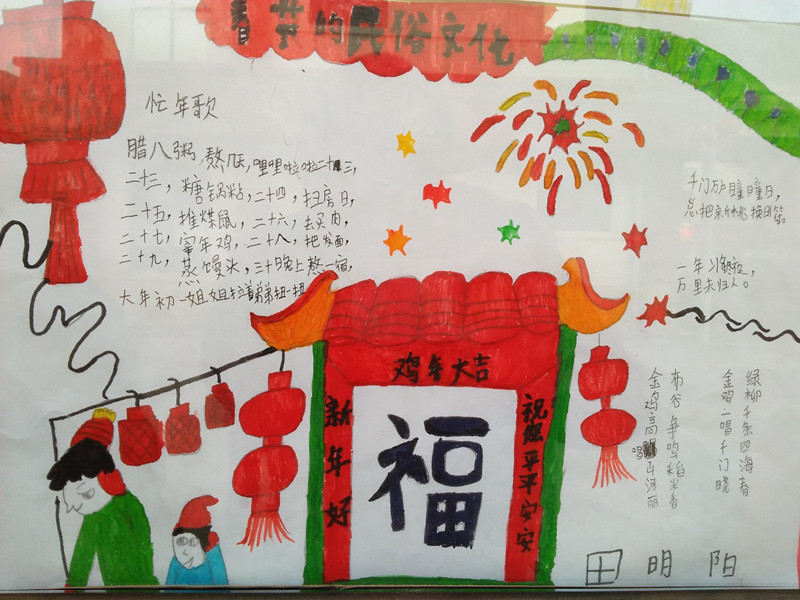 春节的民俗文化
忙年歌
腊八粥,熬几天,哩哩啦啦二十三,
二十三,糖锅粘,二十四,扫房日,
二十五,推煤鼠,二十六,去买肉,
二十七,宰年鸡,二十八,把发面,
二十九,蒸馍头,三十晚上熬一宿,
大年初一姐姐拉着弟弟扭一扭
千门万户瞳瞳日,
总把新桃换旧符。
一年将
万里未归人。
鸡年大吉
新年好
福
祝您平平安安
绿柳千条四海春
金鸡一唱千门晓
布谷争鸣稻米香
金鸡高唱山河丽
田明阳